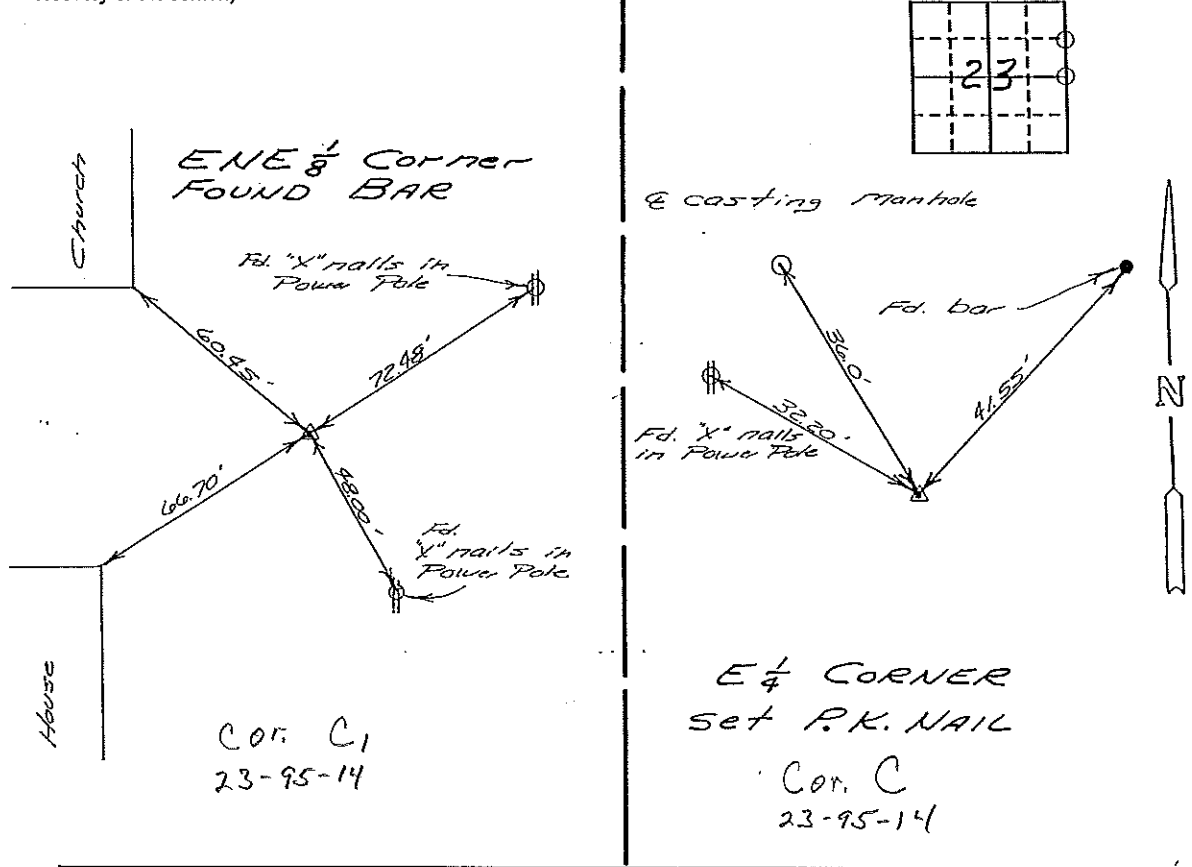 23
ENE 1/8 Corner
FOUND BAR
Church
Fd. "X" nails in
Power Pole
60.45'
72.48'
66.70'
48.00'
Fd.
"X" nails in
Power Pole
House
Cor. C1
23-95-14
℄ casting Manhole
Fd. bar
36.0'
41.55'
32.20'
Fd. "X" nails
in Power Pole
N
E 1/4 CORNER
set P.K. NAIL
Cor. C
23-95-14